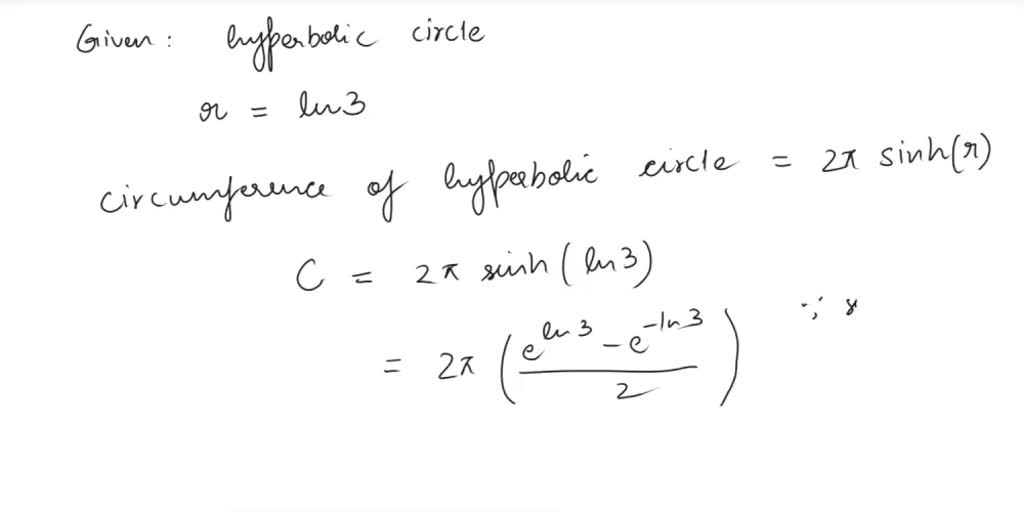 Given: hyperbolic circle
r = ln3
circumference of hyperbolic circle = 2π sinh(r)
C = 2π sinh(ln3)
= 2π (e^{ln 3} - e^{-ln 3} / 2) ∵